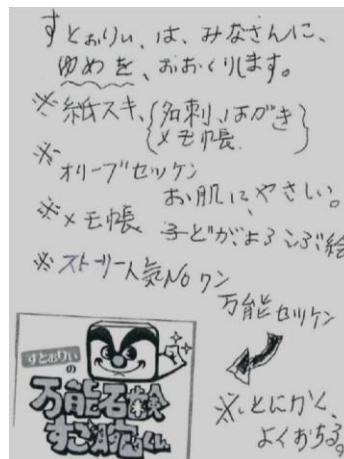 すとぉりぃ、は、みなさんに、
ゆめを、おおくりします。
※紙スキ、{名刺、はがき
メモ帳}
※オリーブセッケン
お肌に、やさしい。
※メモ帳 子どがよろこぶ絵
※ストーリー人気No ワン
万能セッケン
すとぉりぃの
万能石鹸
すご腕くん
※とにかく、
よくおちる。